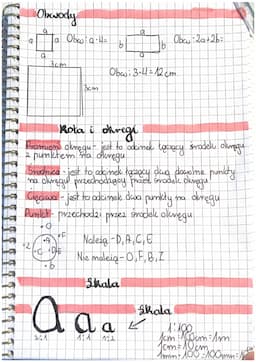 Obwody
a
a a Obw: a·4=
a
a
b b Obw: 2a+2b=
a
3cm
3cm
Obw: 3·4=12cm
Koła i okręgi
Promień okręgu - jest to odcinek łączący środek okręgu
z punktem na okręgu
Średnica - jest to odcinek łączący dwa dowolne punkty
na okręgu przechodzący przez środek okręgu
Cięciwa - jest to odcinek dwa punkty na okręgu
Punkt - przechodzi przez środek okręgu
Należą - D, A, C, E
Nie należą - O, F, B, Z
Skala
Skala
a a a
2:1 1:1 1:2
1:100
1cm=100cm=1m